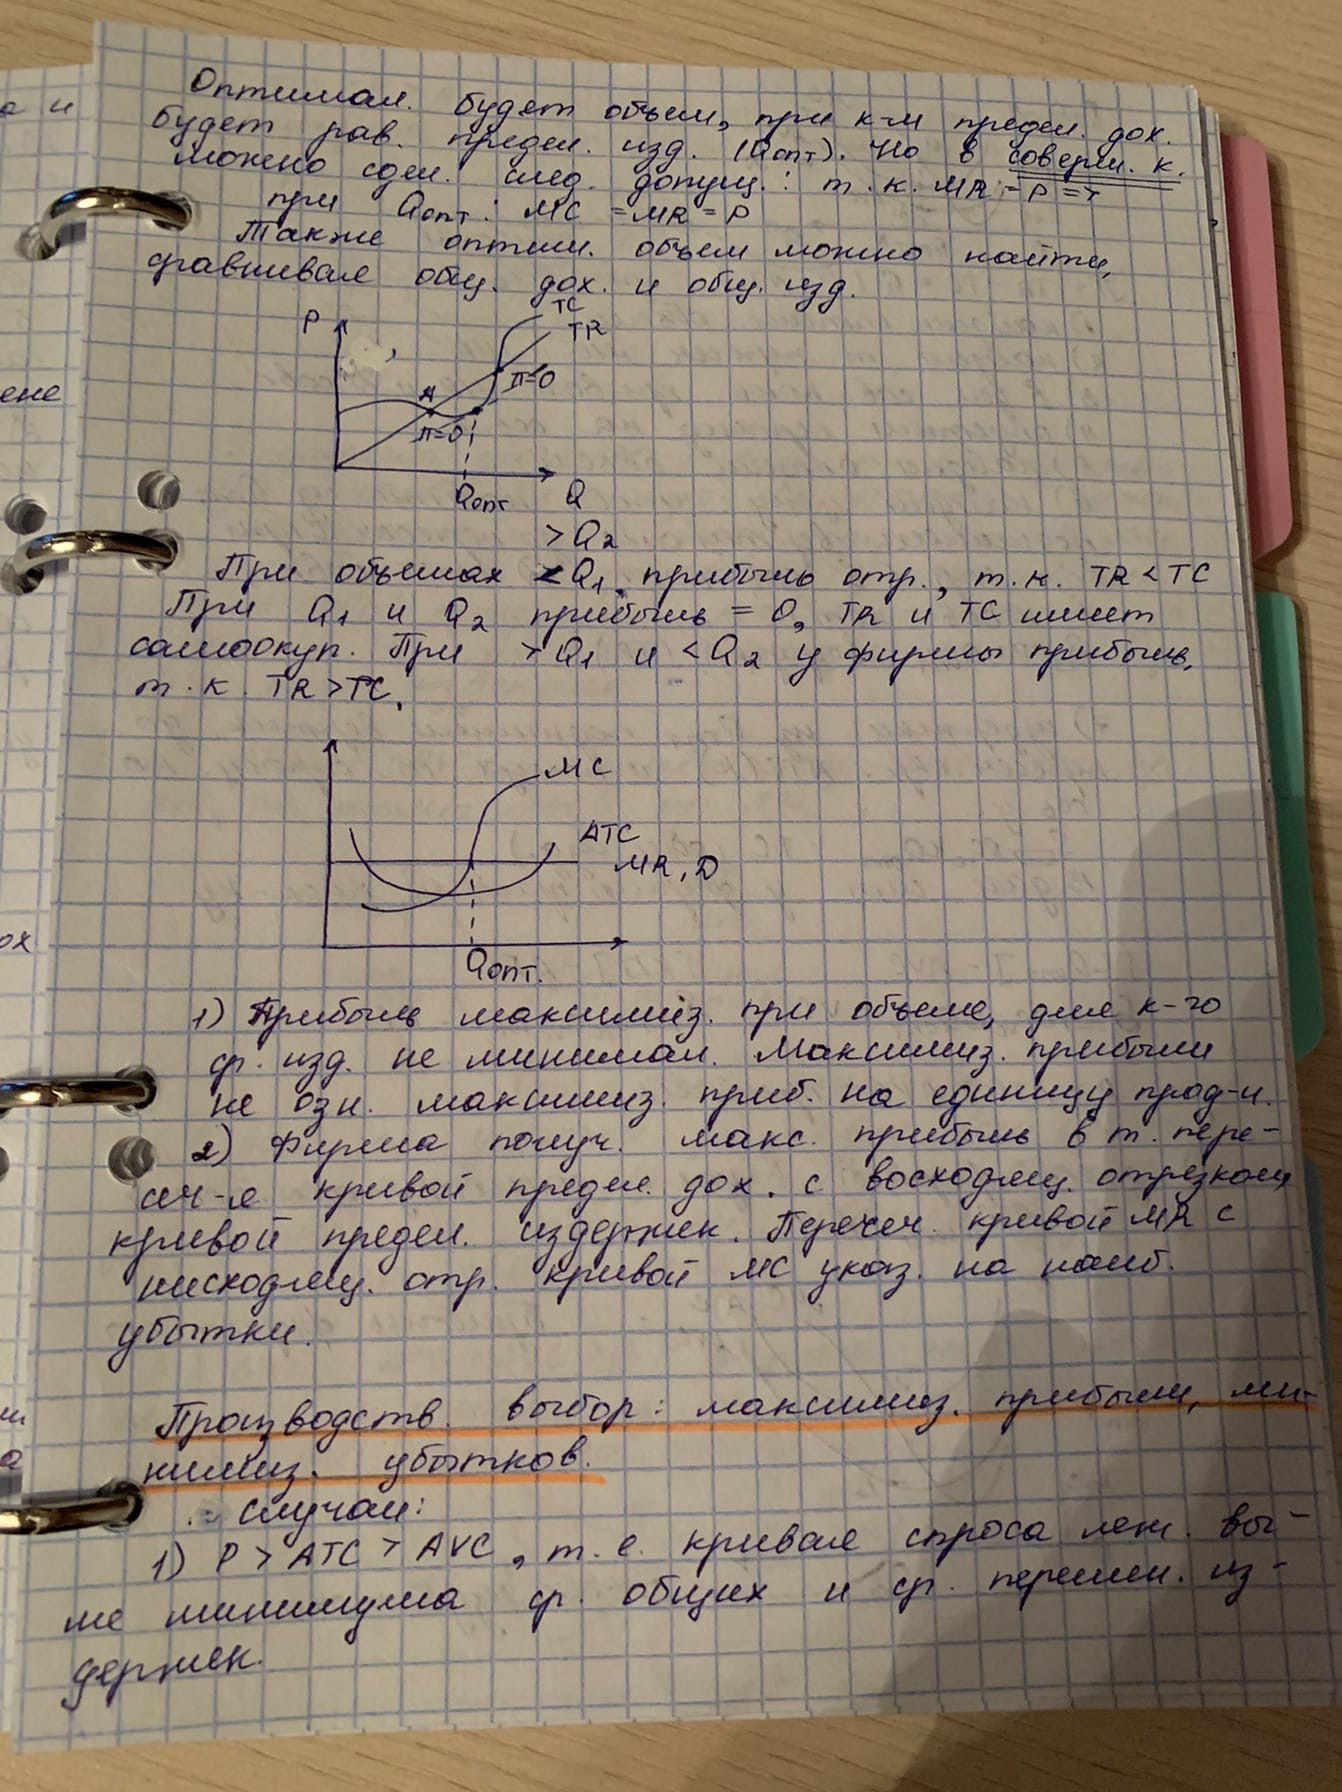 Оптимал. будет объем, при к-м предел. дох.
будет рав. предел. изд. (Qопт). Но в соверш. к.
можно сдел. след. допущ.: т.к. MR = P =>
при Qопт: MC = MR = P
Также оптим. объем можно найти,
сравнивая общ. дох. и общ. изд.
P
TC
TR
π=0
A
π=0
Qопт Q
>Q2
При объемах <Q1, прибыль отр., т.к. TR < TC
При Q1 и Q2 прибыль = 0, TR и TC имеет
самоокуп. При >Q1 и <Q2 у фирмы прибыль,
т.к. TR > TC.
MC
ATC
MR, D
Qопт.
1) Прибыль максимиз. при объеме, для к-го
ср. изд. не минимал. Максимиз. прибыли
не озн. максимиз. приб. на единицу прод-и.
2) Фирма получ. макс. прибыль в т. пере-
сеч-я кривой предел. дох. с восходящ. отрезком
кривой предел. издержек. Пересеч. кривой MR с
нисходящ. отр. кривой MC указ. на наиб.
убытки.
Производств. выбор: максимиз. прибыли, ми-
нимиз. убытков.
Случаи:
1) P > ATC > AVC, т.е. кривая спроса леж. вы-
ше минимума ср. общих и ср. перемен. из-
держек.
а и
ене
ох
а